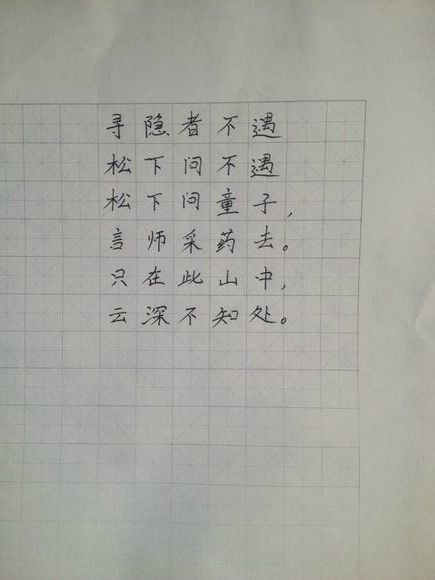 寻隐者不遇
松下问不遇
松下问童子，
言师采药去。
只在此山中，
云深不知处。